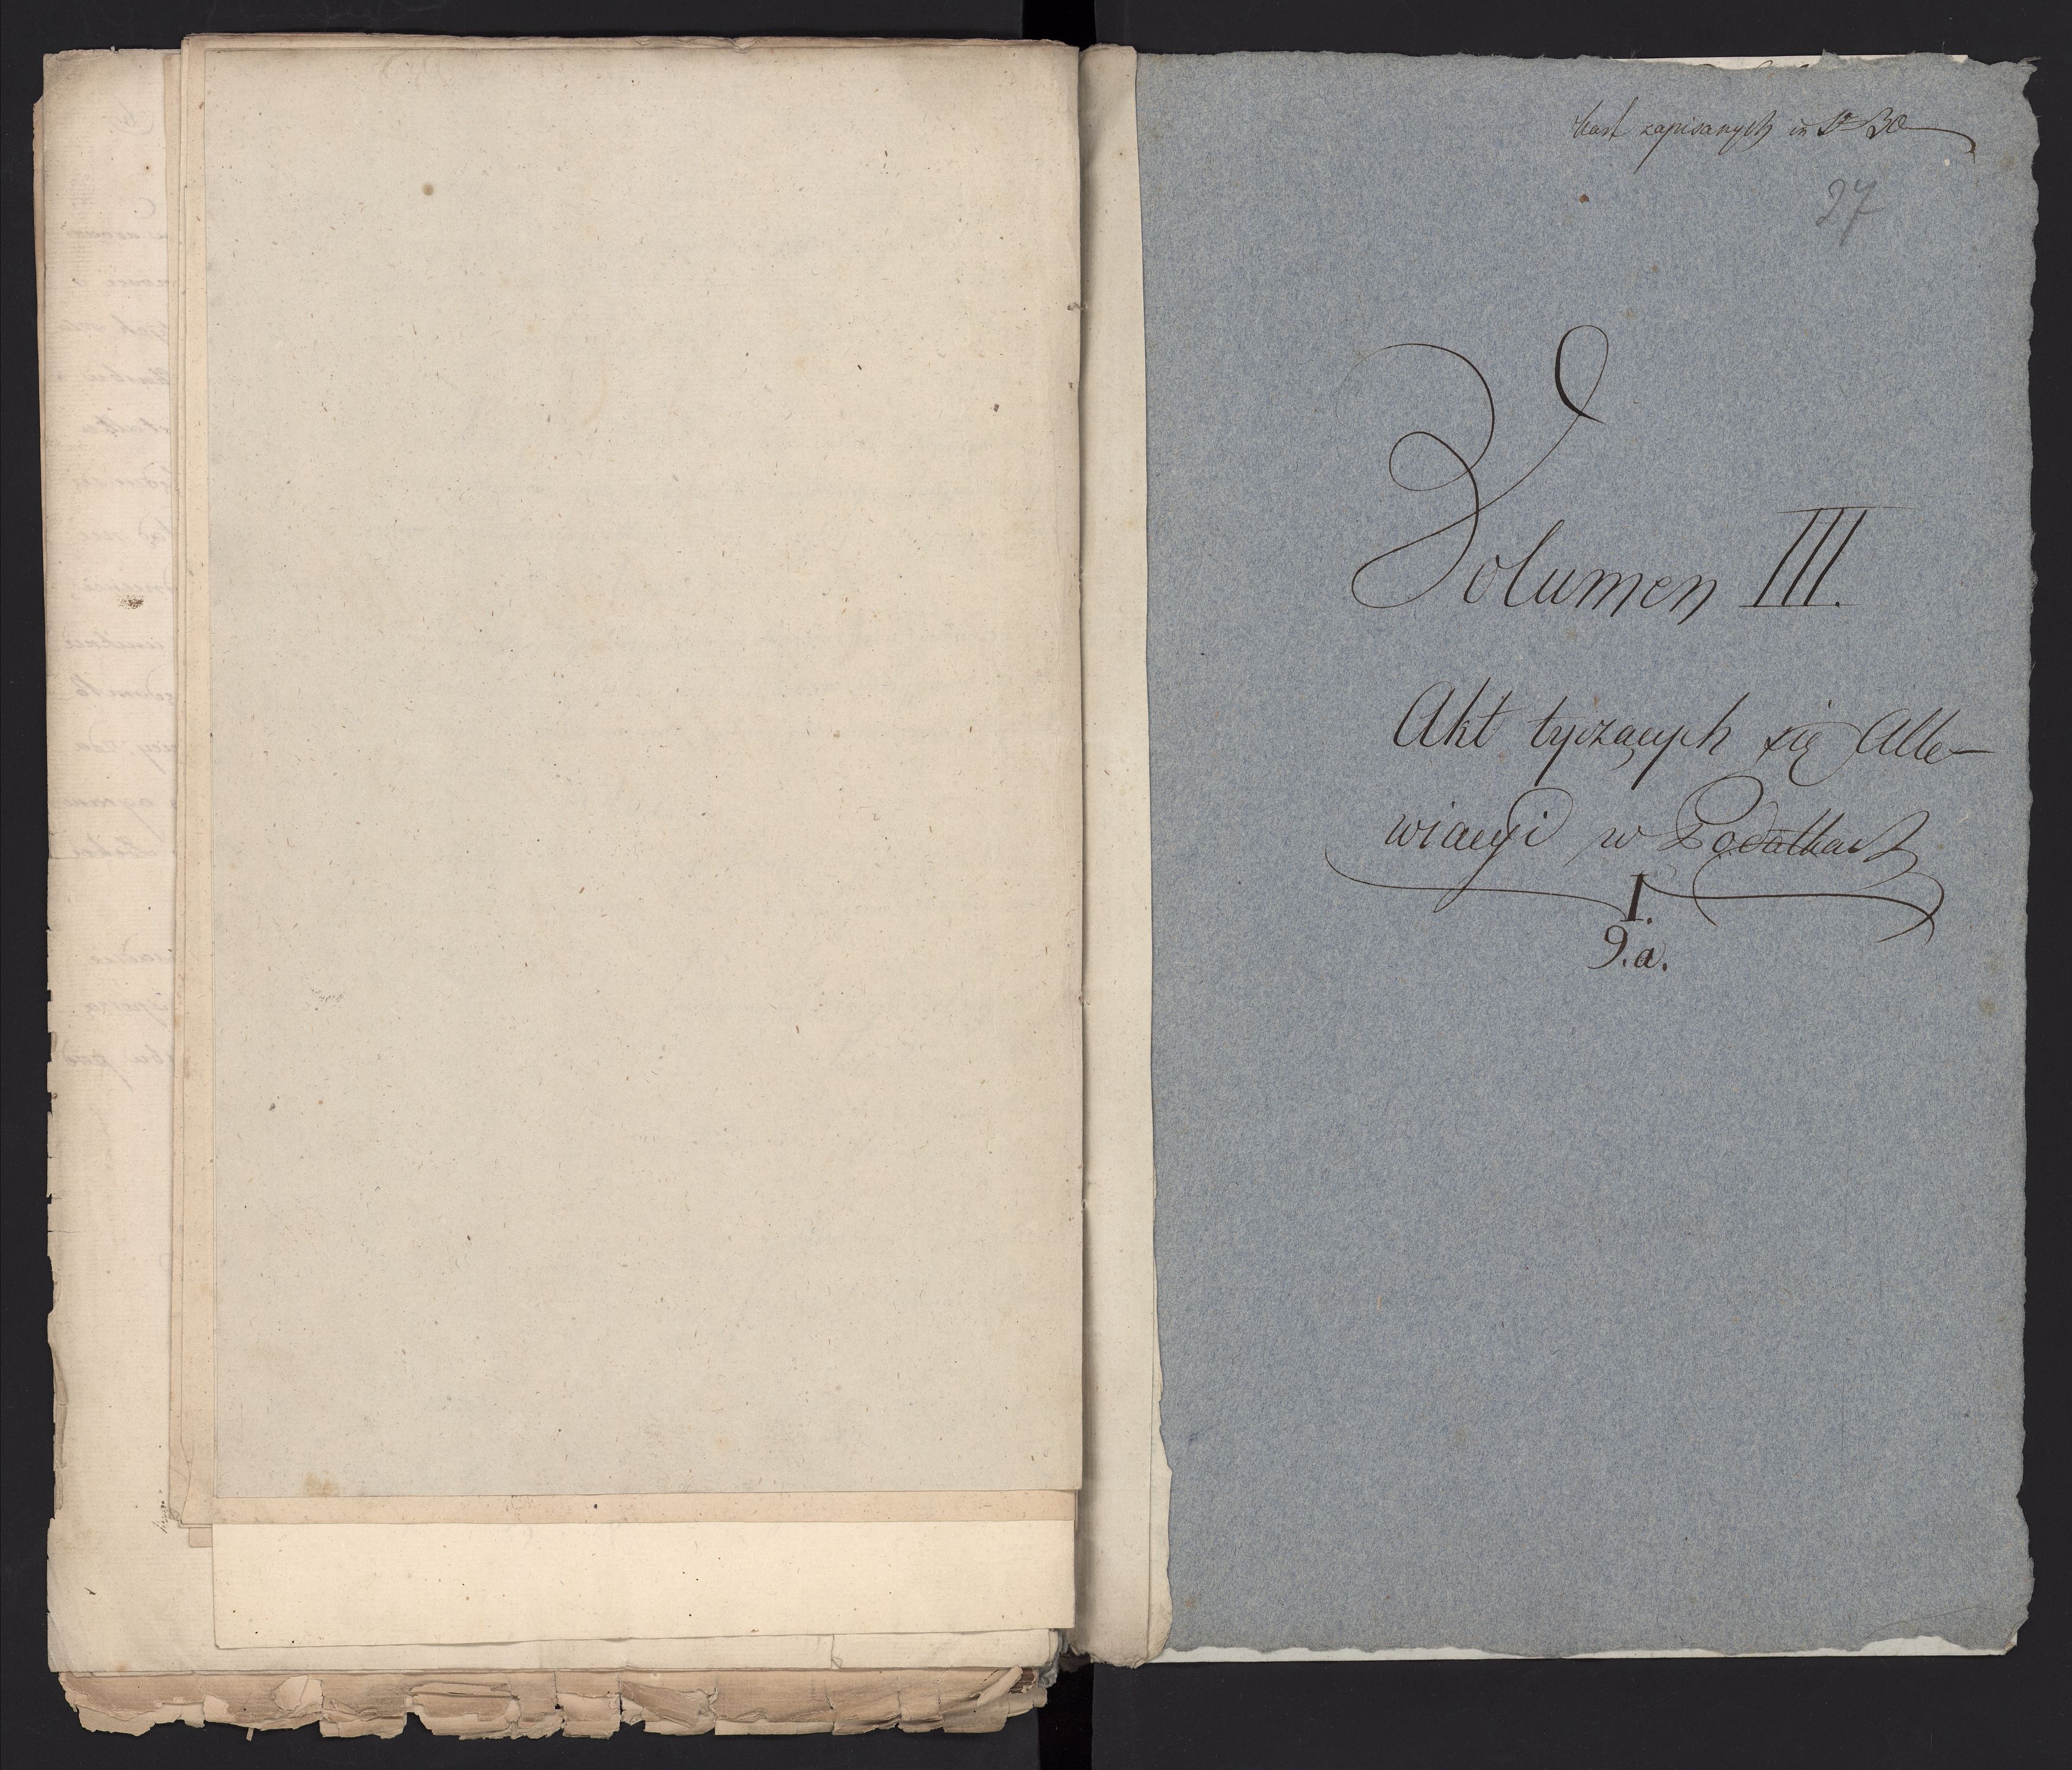 kart zapisanych in
27
Volumen III.
Akt tyczących się Alle-
wiacyi w Podatkach
I.
9.a.